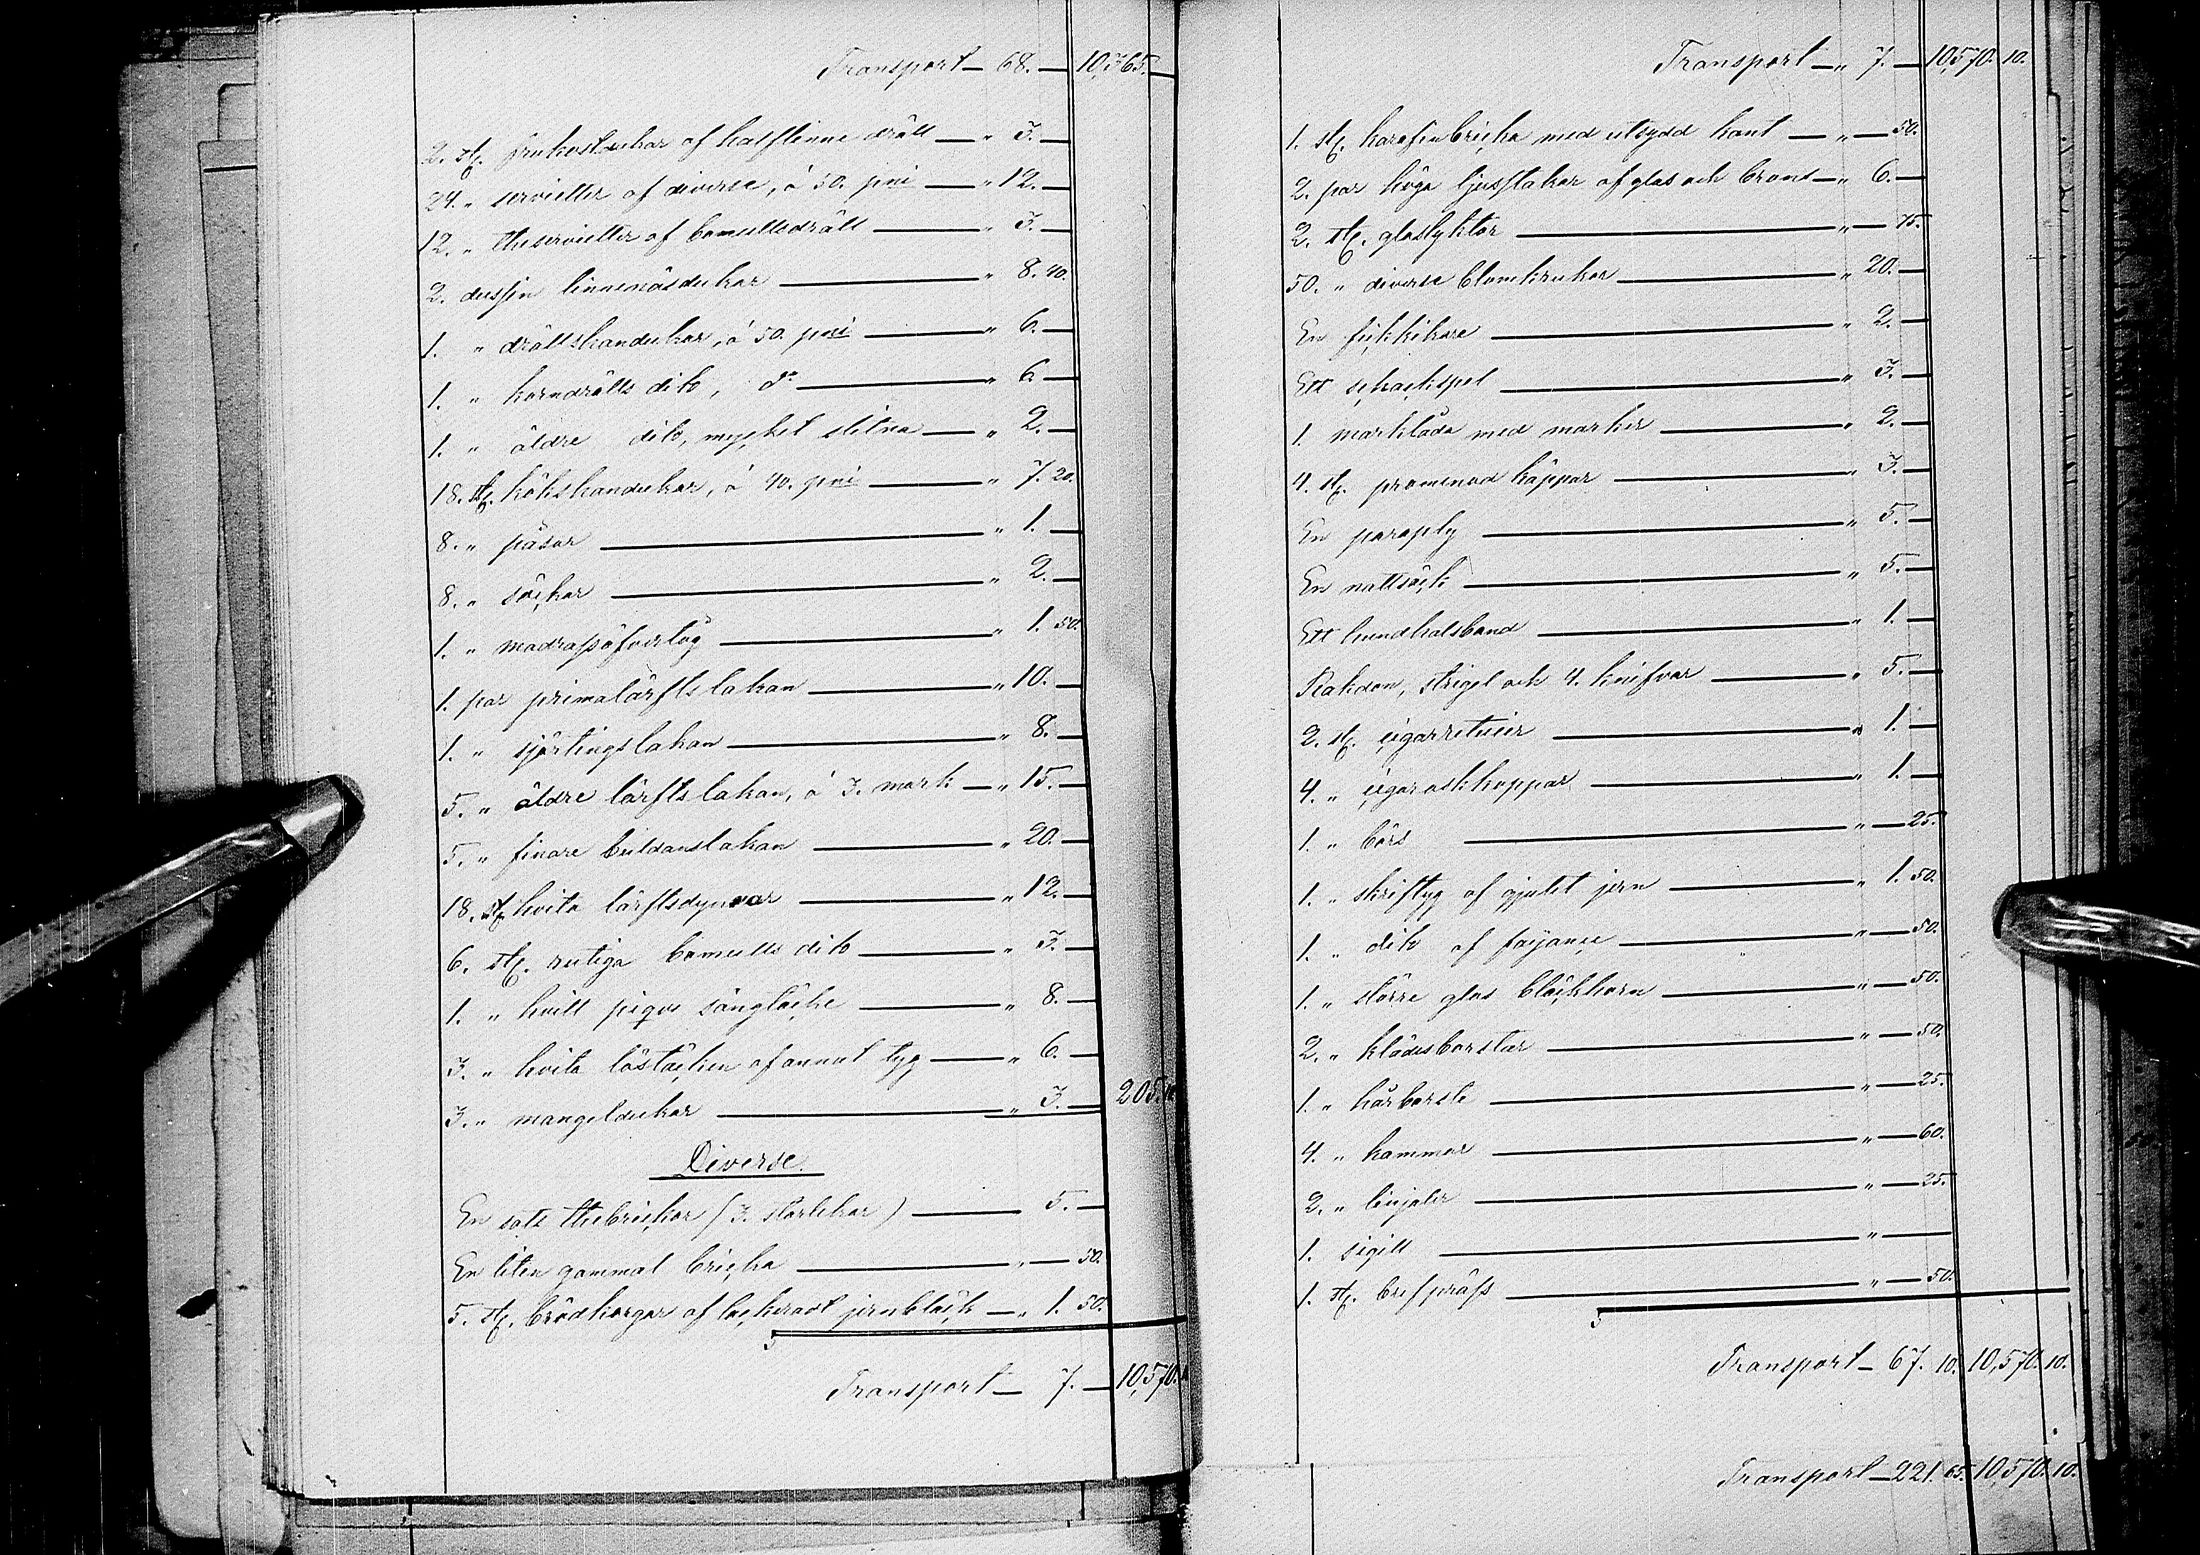 Transport — 68. — 10,365. —
2. st. frukostdukar af halflinne dräll — " 3. —
24. " servietter af diverse, á 50. pni — " 12. —
12. " theservietter af bomullsdräll — " 3. —
2. dussin linnenäsdukar — " 8. 40.
1. " drällshandukar, á 50. pni — " 6. —
1. " korndrälls dito, do — " 6. —
1. " äldre dito, mycket slitna — " 2. —
18. st. kökshandukar, á 40. pni — " 7. 20.
8. " påsar — " 1. —
8. " säckar — " 2. —
1. " madrassöfverlag — " 1. 50.
1. par primalärftslakan — " 10. —
1. " sjärtingslakan — " 8. —
5. " äldre lärftslakan, á 3. mark — " 15. —
5. " finare buldanslakan — " 20. —
18. st. hvita lärftsdynvar — " 12. —
6. st. rutiga bomulls dito — " 3. —
1. " hvitt piqve sängtäcke — " 8. —
3. " hvita löstäcken af annat tyg — " 6. —
3. " mangeldukar — " 3. — 205. 10
Diverse.
En sats thebrickor (3. storlekar) — 5. —
En liten gammal bricka — " — 50.
5. st. brödkorgar af lackeradt jernbläck — " 1. 50.
Transport — 7. — 10,570. 10
Transport — " 7. — 10,570. 10.
1. st. karafinbricka med utsydd kant — " — 50.
2. par höga ljusstakar af glas och brons — " 6. —
2. st. glaslyktor — " — 75.
50. " diverse blomkrukor — " 20. —
En fickkikare — " 2. —
Ett schackspel — " 3. —
1. marklåda med marker — " 2. —
4. st. promenad käppar — " 3. —
En paraply — " 5. —
En nattsäck — " 5. —
Ett hundhalsband — " 1. —
Rakdon, strigel och 4. knifvar — " 5. —
2. st. cigarretuier — " 1. —
4. " cigaraskkoppar — " 1. —
1. " börs — " — 25.
1. " skriftyg af gjutet jern — " 1. 50.
1. " dito af fayance — " — 50.
1. " större glas bläckhorn — " — 50.
2. " klädesborstar — " — 50.
1. " hårborste — " — 25.
4. " kammar — " — 60.
2. " linjaler — " — 25.
1. sigill — " —
1. st. brefpräss — " — 50.
Transport — 67. 10. 10,570. 10.
Transport — 221. 65. 10,570. 10.